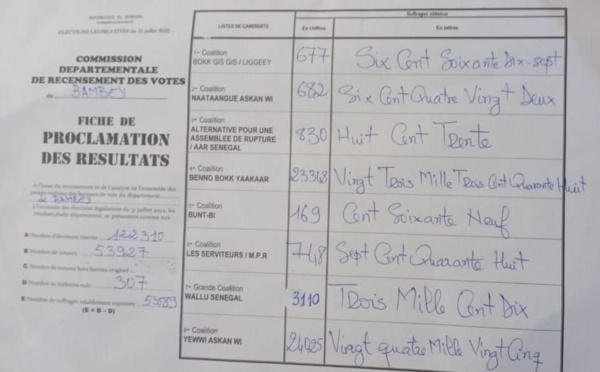 REPUBLIQUE DU SENEGAL
ELECTIONS LEGISLATIVES du 31 juillet 2022
COMMISSION
DEPARTEMENTALE
DE RECENSEMENT DES VOTES
de BAMBEY
FICHE DE
PROCLAMATION
DES RESULTATS
A l'issue du recensement et de l'analyse de l'ensemble des
de BAMBEY
A Nombre d'électeurs inscrits 122310
B Nombre de votants 53927
C Nombre de votants hors bureau originel
D Nombre de bulletins nuls 307
E Nombre de suffrages valablement exprimés 53589
(E = B - D)
LISTES DE CANDIDATS
Suffrages obtenus
En chiffres
En lettres
1ère Coalition
BOKK GIS GIS / LIGGEEY
677
Six Cent Soixante Dix-sept
2e Coalition
NAATAANGUE ASKAN WI
682
Six Cent Quatre Vingt Deux
Coalition
ALTERNATIVE POUR UNE
ASSEMBLEE DE RUPTURE
/ AAR SENEGAL
830
Huit Cent Trente
Coalition
BENNO BOKK YAAKAAR
23348
Vingt Trois Mille Trois Cent Quarante Huit
Coalition
BUNT-BI
169
Cent Soixante Neuf
Coalition
LES SERVITEURS / M.P.R
748
Sept Cent Quarante Huit
Grande Coalition
WALLU SENEGAL
3110
Trois Mille Cent Dix
Coalition
YEWWI ASKAN WI
24025
Vingt quatre Mille Vingt Cinq